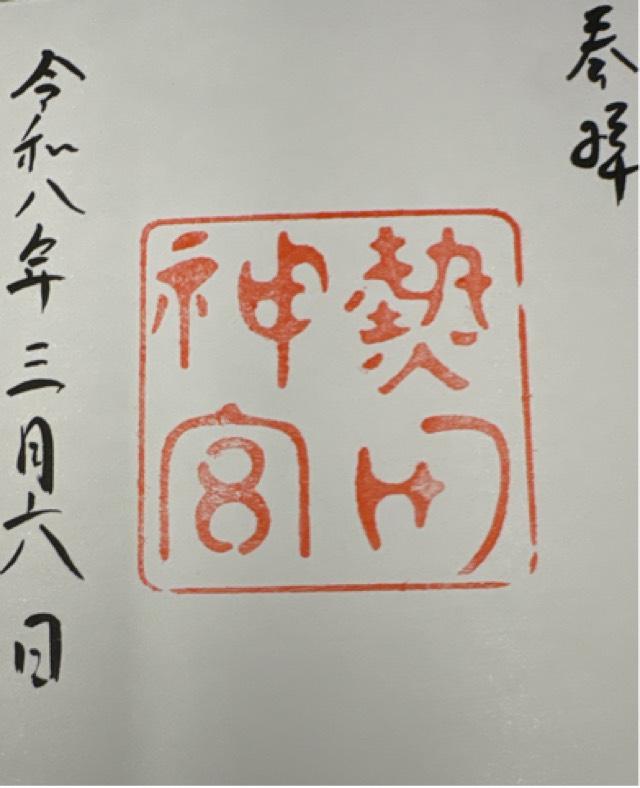 奉拝
熱田
神宮
令和八年三月六日